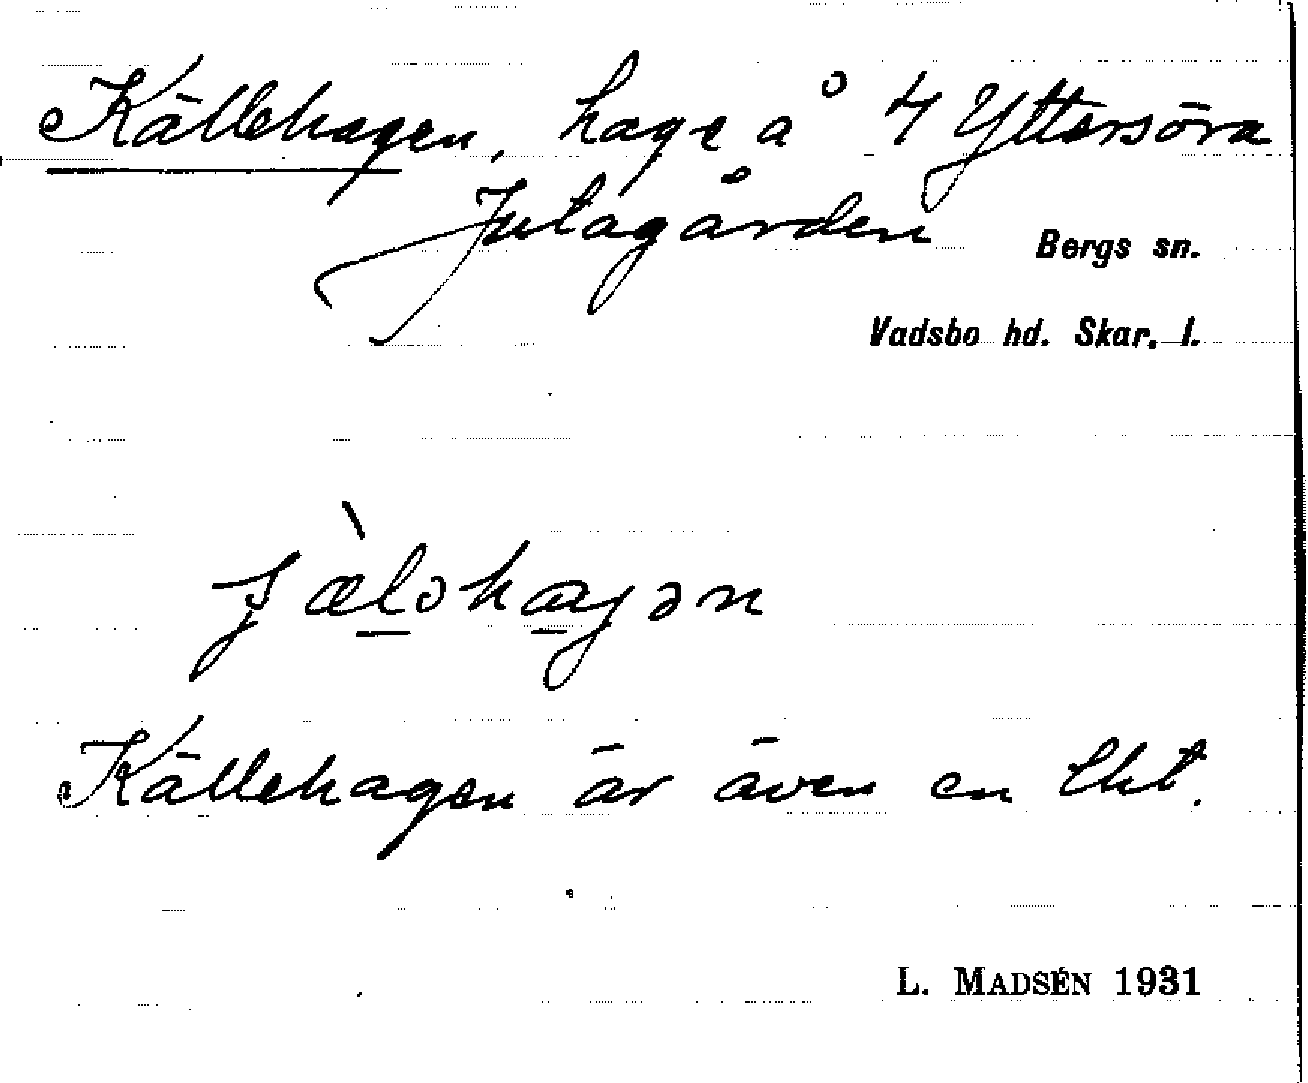 Källehagen, hage å 4 Yttersöra
Jutagården
Bergs sn.
Vadsbo hd. Skar. l.
Källehagen är även en lht.
L. MADSÉN 1931